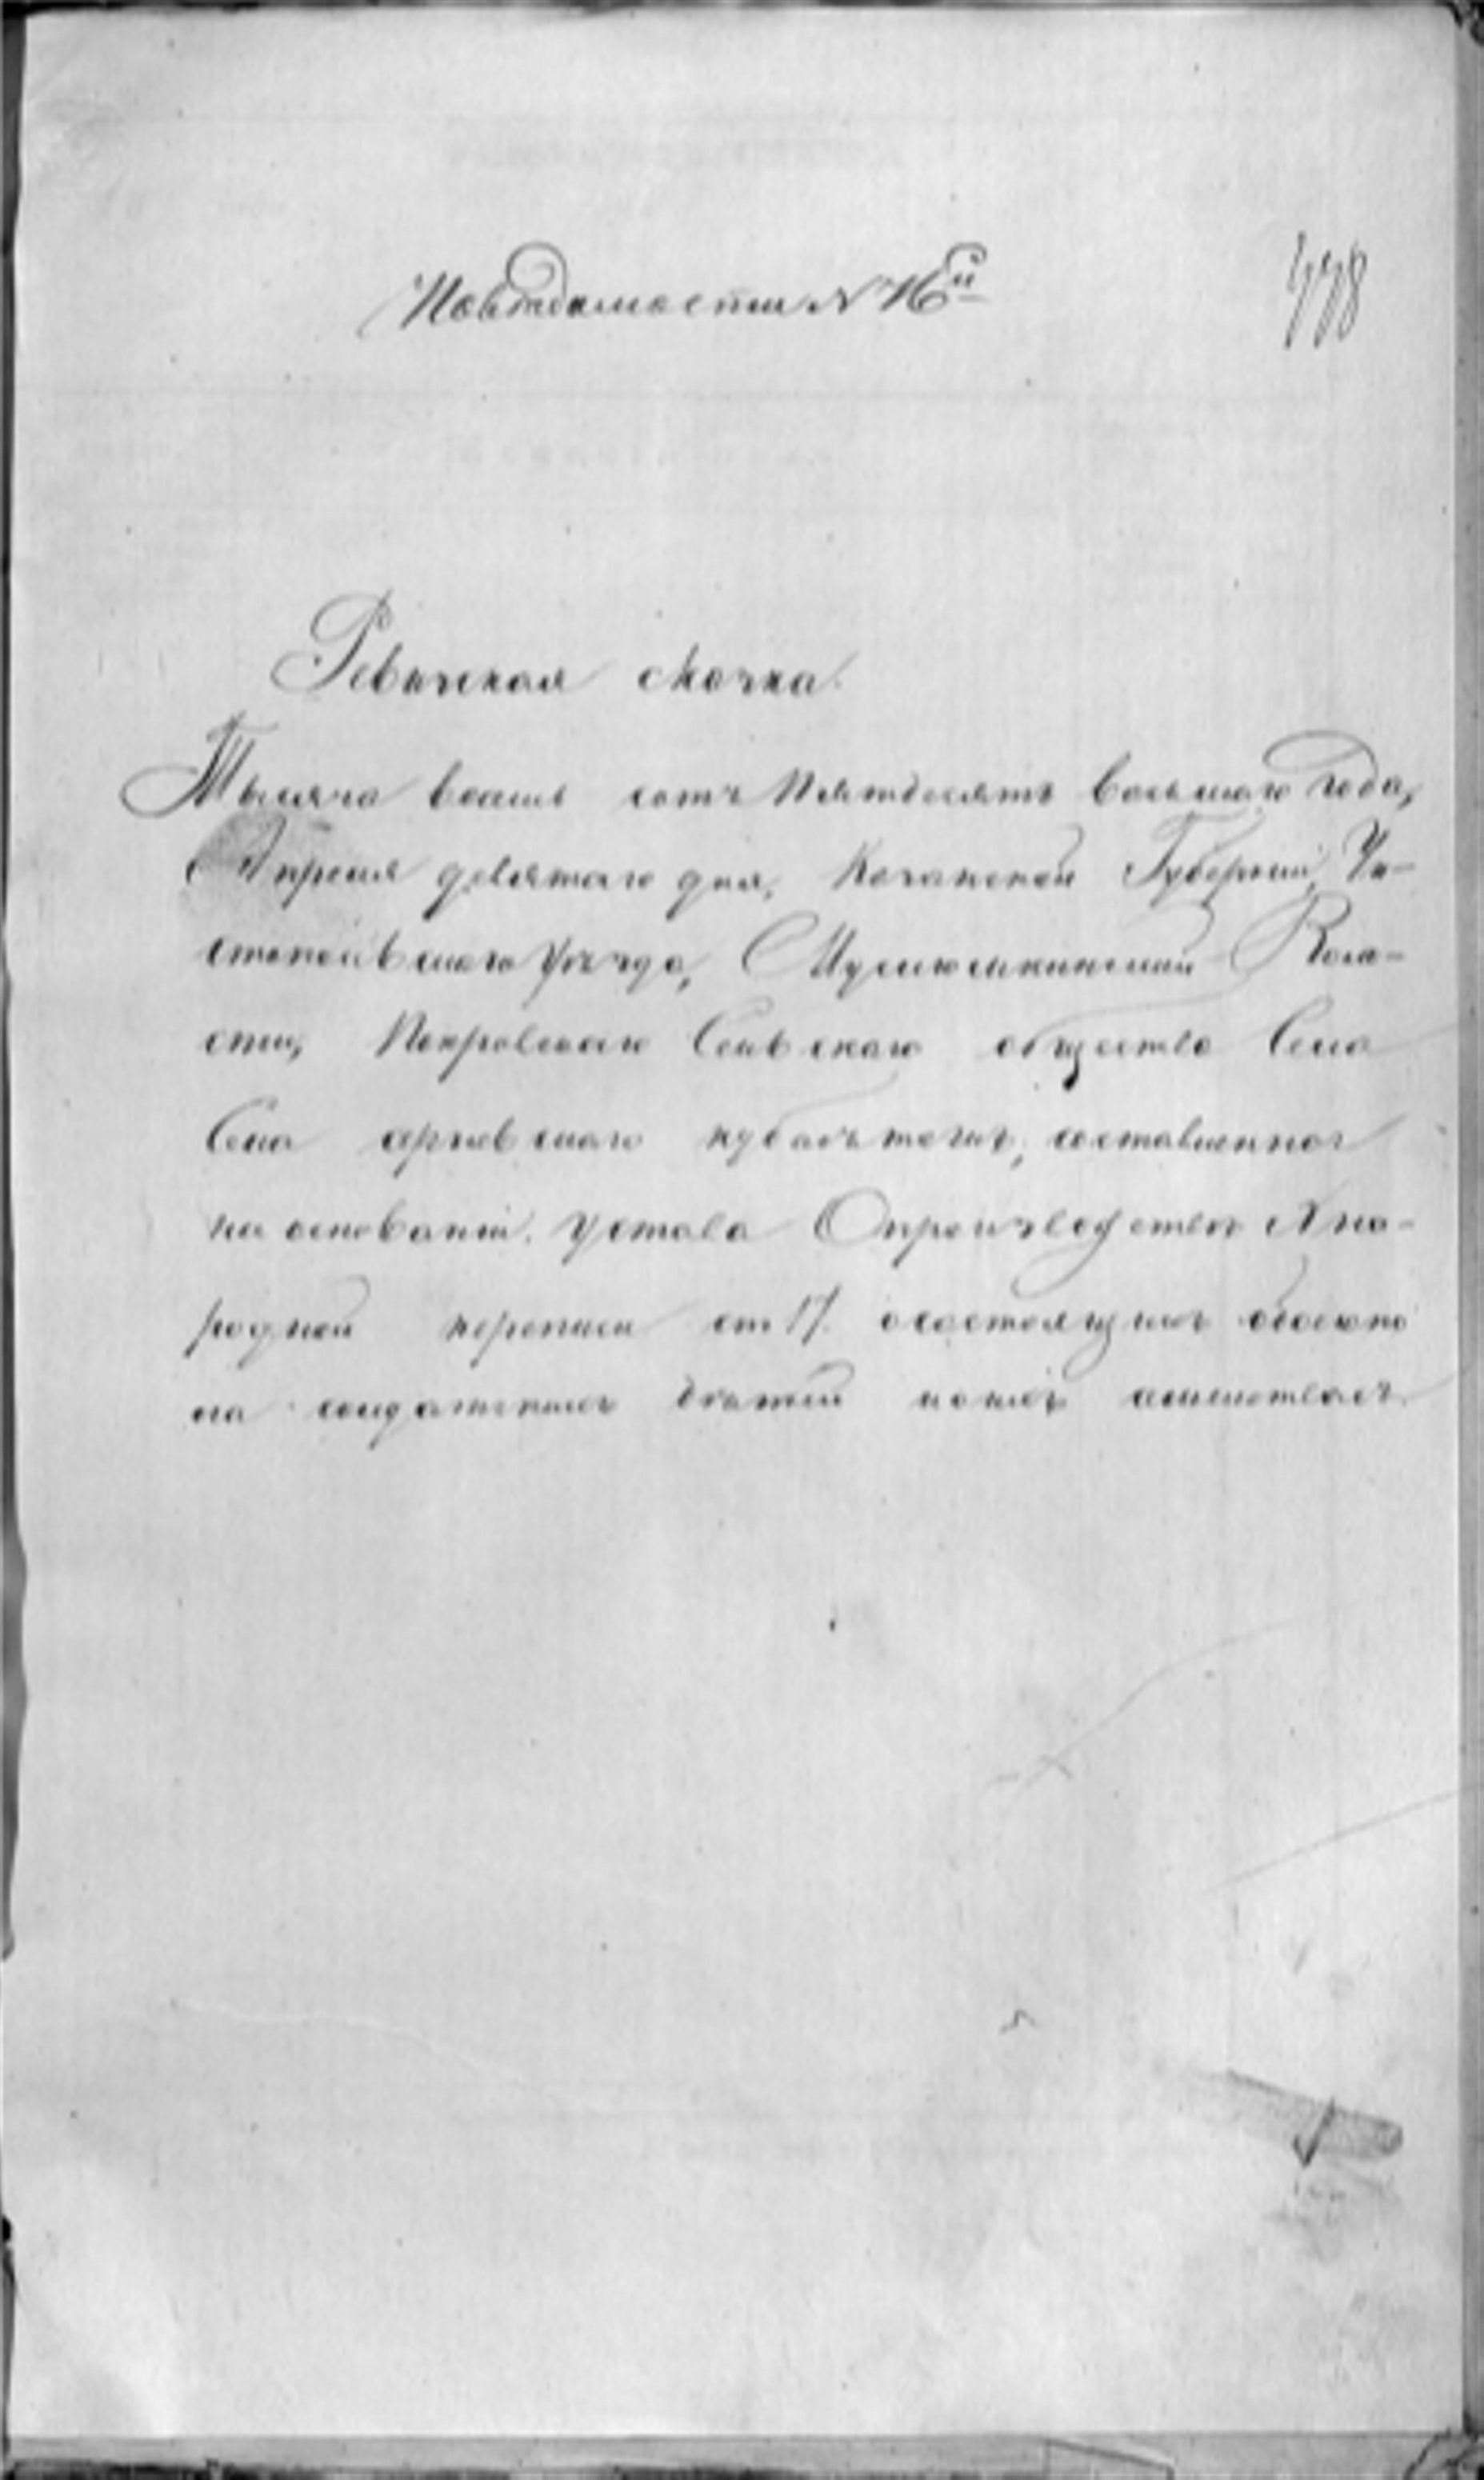 Поведомости N 16й
478
Ревизская сказка.
Тысяча восемь сотъ Пятдесятъ восьмаго года,
Апреля девятаго дня, Казанской Губерніи, Чи-
стопольскаго уезда, Воло-
сти, Покровскаго Сельскаго общества Села
Села кубасъ, составленной
на основаніи. Устава Опроизведстве на-
родной переписи ст 17. осостоящихъ
на солдатскихъ детей